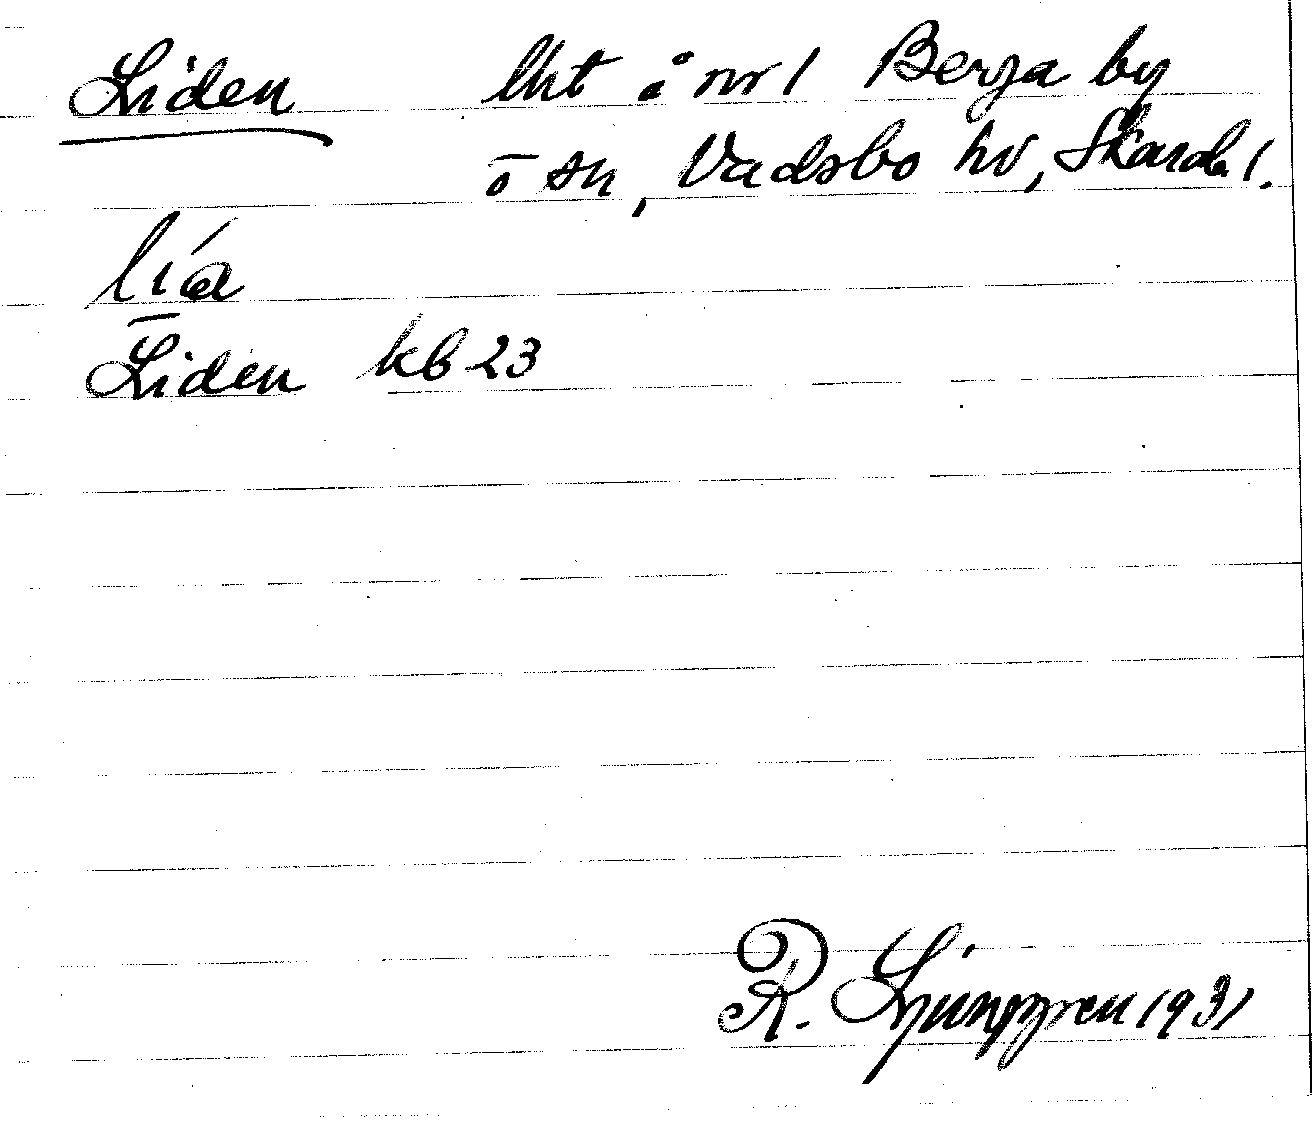 Liden lht å nr 1 Berga by
ō sn, Vadsbo hd, Skarab. l.
lía
Liden kb 23
R. Ljunggren 1931